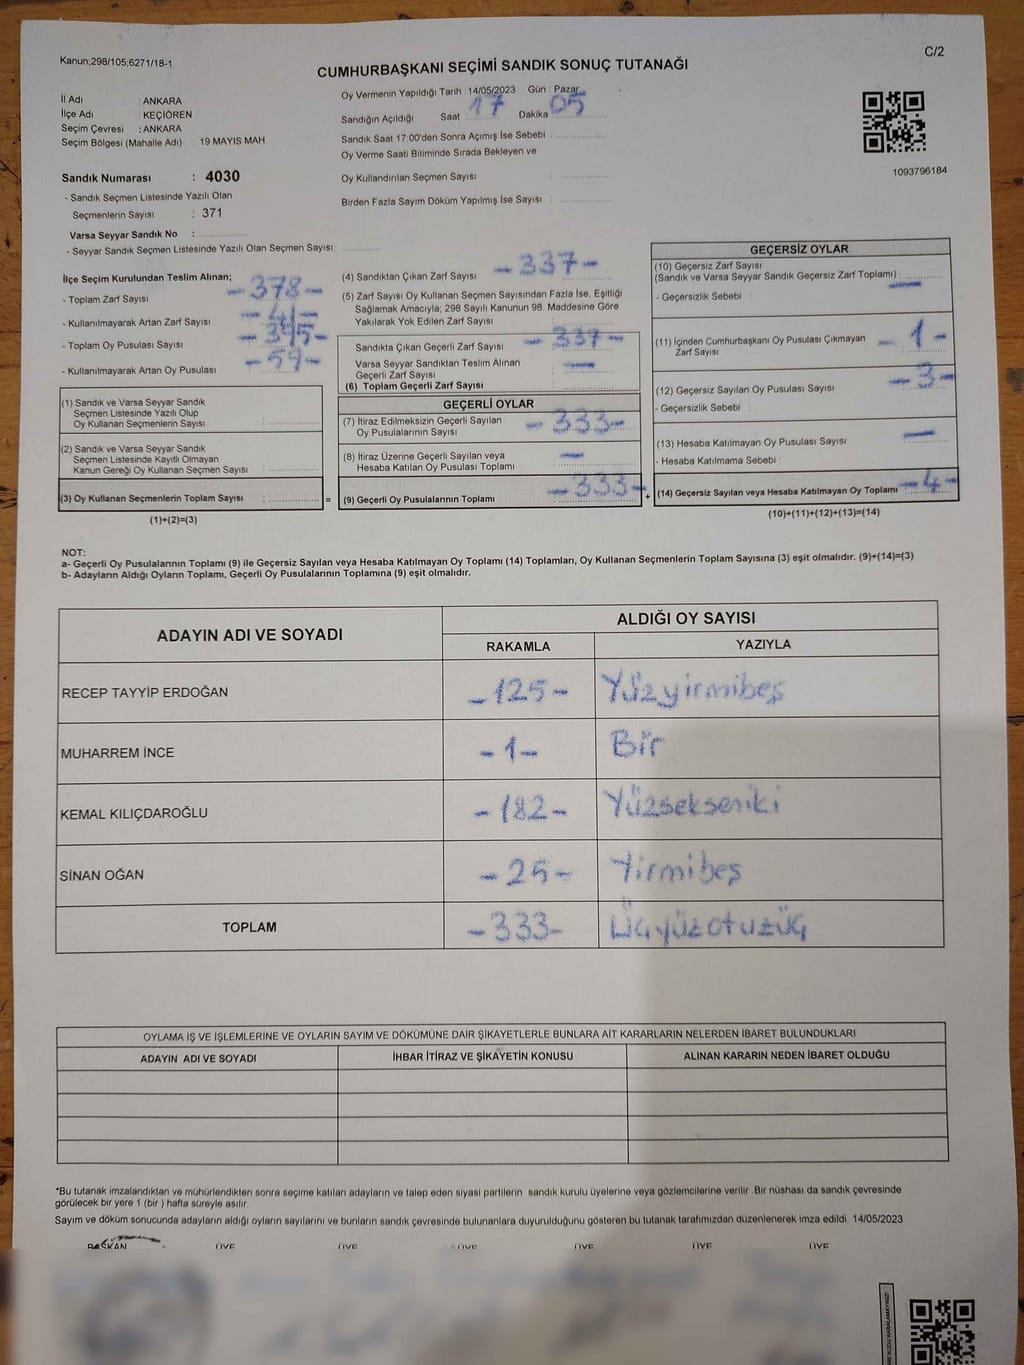 Kanun;298/105;6271/18-1
C/2
CUMHURBAŞKANI SEÇİMİ SANDIK SONUÇ TUTANAĞI
İl Adı : ANKARA
İlçe Adı : KEÇİÖREN
Seçim Çevresi : ANKARA
Seçim Bölgesi (Mahalle Adı) : 19 MAYIS MAH
Sandık Numarası : 4030
- Sandık Seçmen Listesinde Yazılı Olan
Seçmenlerin Sayısı : 371
Varsa Seyyar Sandık No :
- Seyyar Sandık Seçmen Listesinde Yazılı Olan Seçmen Sayısı:
Oy Vermenin Yapıldığı Tarih : 14/05/2023 Gün : Pazar
Sandığın Açıldığı Saat 17 Dakika 05
Sandık Saat 17:00'den Sonra Açımış İse Sebebi :
Oy Verme Saati Bitiminde Sırada Bekleyen ve
Oy Kullandırılan Seçmen Sayısı :
Birden Fazla Sayım Döküm Yapılmış İse Sayısı :
1093796184
İlçe Seçim Kurulundan Teslim Alınan;
- Toplam Zarf Sayısı -378-
- Kullanılmayarak Artan Zarf Sayısı -41-
- Toplam Oy Pusulası Sayısı
- Kullanılmayarak Artan Oy Pusulası -59-
(1) Sandık ve Varsa Seyyar Sandık
Seçmen Listesinde Yazılı Olup
Oy Kullanan Seçmenlerin Sayısı :
(2) Sandık ve Varsa Seyyar Sandık
Seçmen Listesinde Kayıtlı Olmayan
Kanun Gereği Oy Kullanan Seçmen Sayısı :
(3) Oy Kullanan Seçmenlerin Toplam Sayısı : =
(1)+(2)=(3)
(4) Sandıktan Çıkan Zarf Sayısı -337-
(5) Zarf Sayısı Oy Kullanan Seçmen Sayısından Fazla İse, Eşitliği
Sağlamak Amacıyla; 298 Sayılı Kanunun 98. Maddesine Göre
Yakılarak Yok Edilen Zarf Sayısı
Sandıkta Çıkan Geçerli Zarf Sayısı -337-
Varsa Seyyar Sandıktan Teslim Alınan
Geçerli Zarf Sayısı -
(6) Toplam Geçerli Zarf Sayısı
GEÇERLİ OYLAR
(7) İtiraz Edilmeksizin Geçerli Sayılan
Oy Pusulalarının Sayısı -333-
(8) İtiraz Üzerine Geçerli Sayılan veya
Hesaba Katılan Oy Pusulası Toplamı -
(9) Geçerli Oy Pusulalarının Toplamı -333- +
GEÇERSİZ OYLAR
(10) Geçersiz Zarf Sayısı
(Sandık ve Varsa Seyyar Sandık Geçersiz Zarf Toplamı) : -
- Geçersizlik Sebebi :
(11) İçinden Cumhurbaşkanı Oy Pusulası Çıkmayan
Zarf Sayısı -1-
(12) Geçersiz Sayılan Oy Pusulası Sayısı -3-
- Geçersizlik Sebebi :
(13) Hesaba Katılmayan Oy Pusulası Sayısı -
- Hesaba Katılmama Sebebi :
(14) Geçersiz Sayılan veya Hesaba Katılmayan Oy Toplamı -4-
(10)+(11)+(12)+(13)=(14)
NOT:
a- Geçerli Oy Pusulalarının Toplamı (9) ile Geçersiz Sayılan veya Hesaba Katılmayan Oy Toplamı (14) Toplamları, Oy Kullanan Seçmenlerin Toplam Sayısına (3) eşit olmalıdır. (9)+(14)=(3)
b- Adayların Aldığı Oyların Toplamı, Geçerli Oy Pusulalarının Toplamına (9) eşit olmalıdır.
ADAYIN ADI VE SOYADI
ALDIĞI OY SAYISI
RAKAMLA YAZIYLA
RECEP TAYYİP ERDOĞAN -125- Yüzyirmibeş
MUHARREM İNCE -1- Bir
KEMAL KILIÇDAROĞLU -182- Yüzsekseniki
SİNAN OĞAN -25- Yirmibeş
TOPLAM -333- Üçyüzotuzüç
OYLAMA İŞ VE İŞLEMLERİNE VE OYLARIN SAYIM VE DÖKÜMÜNE DAİR ŞİKAYETLERLE BUNLARA AİT KARARLARIN NELERDEN İBARET BULUNDUKLARI
ADAYIN ADI VE SOYADI İHBAR İTİRAZ VE ŞİKAYETİN KONUSU ALINAN KARARIN NEDEN İBARET OLDUĞU
*Bu tutanak imzalandıktan ve mühürlendikten sonra seçime katılan adayların ve talep eden siyasi partilerin sandık kurulu üyelerine veya gözlemcilerine verilir. Bir nüshası da sandık çevresinde
görülecek bir yere 1 (bir ) hafta süreyle asılır.
Sayım ve döküm sonucunda adayların aldığı oyların sayılarını ve bunların sandık çevresinde bulunanlara duyurulduğunu gösteren bu tutanak tarafımızdan düzenlenerek imza edildi. 14/05/2023
BAŞKAN ÜYE ÜYE ÜYE ÜYE ÜYE ÜYE